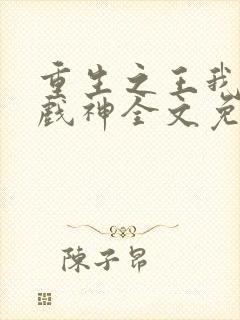 重生之王我
戏神全文免
陳子昂